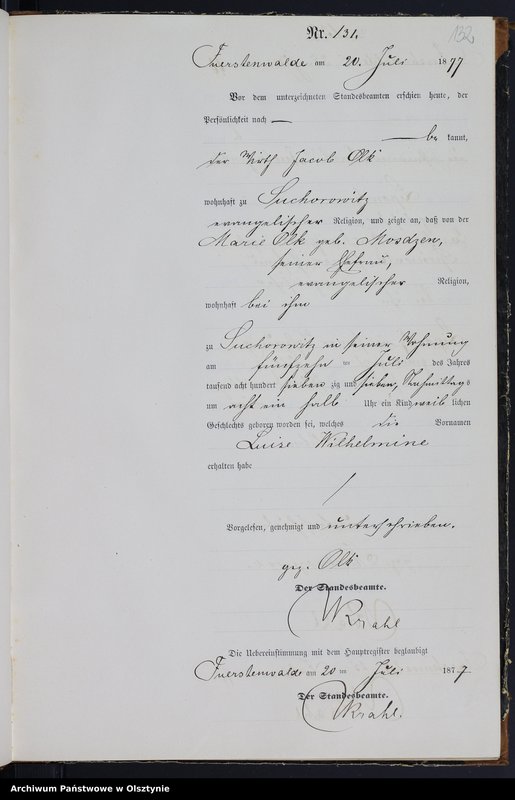 Nr. 131.
132
Fuerstenwalde am 20. Juli 1877
Vor dem unterzeichneten Standesbeamten erschien heute, der
Persönlichkeit nach —
— be kannt,
der Wirth Jacob Olk
wohnhaft zu Suchorowitz
evangelischer Religion, und zeigte an, daß von der
Marie Olk geb. Mosdzen,
seiner Ehefrau,
evangelischer Religion,
wohnhaft bei ihm
zu Suchorowitz in seiner Wohnung
am fünfzehn ten Juli des Jahres
tausend acht hundert sieben zig und sieben, Nachmittags
um acht ein halb Uhr ein Kind weib lichen
Geschlechts geboren worden sei, welches die Vornamen
Luise Wilhelmine
erhalten habe
Vorgelesen, genehmigt und unterschrieben.
gez. Olk
Der Standesbeamte.
Krahl
Die Uebereinstimmung mit dem Hauptregister beglaubigt
Fuerstenwalde am 20 ten Juli 1877
Der Standesbeamte.
Krahl.
Archiwum Państwowe w Olsztynie